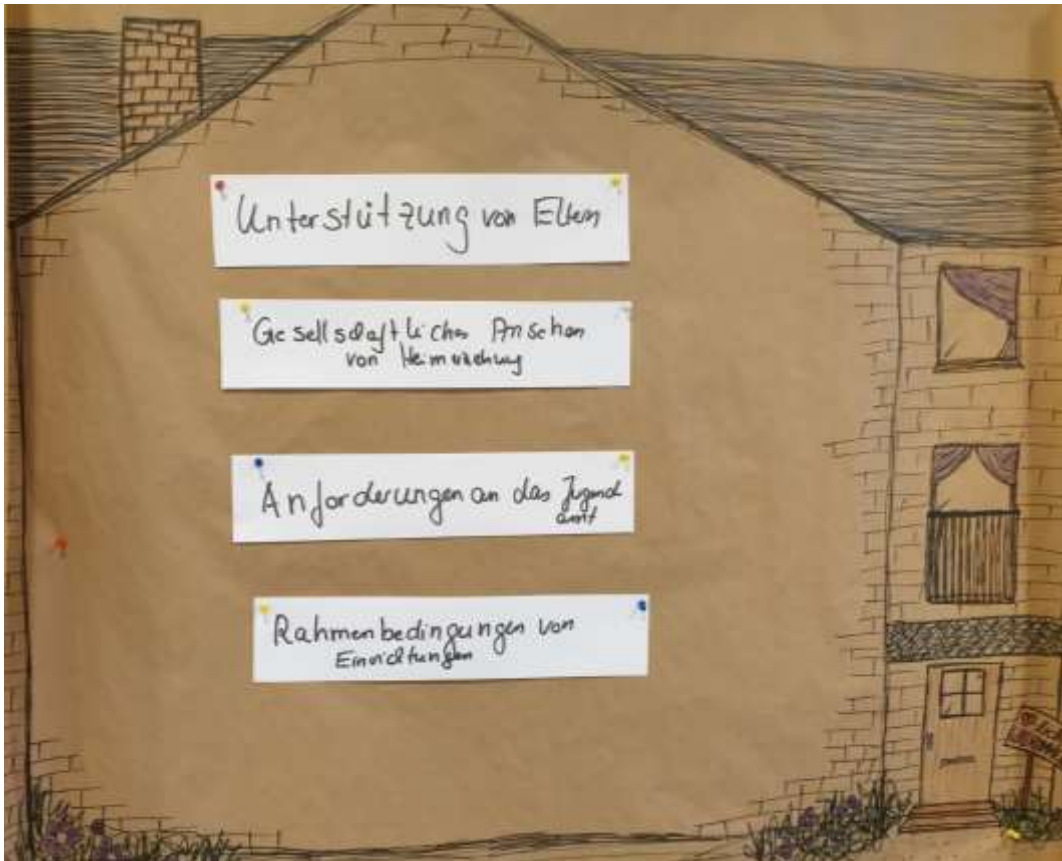 Unterstützung von Eltern
Gesellschaftliches Ansehen
von Heimerziehung
Anforderungen an das Jugend
amt
Rahmenbedingungen von
Einrichtungen